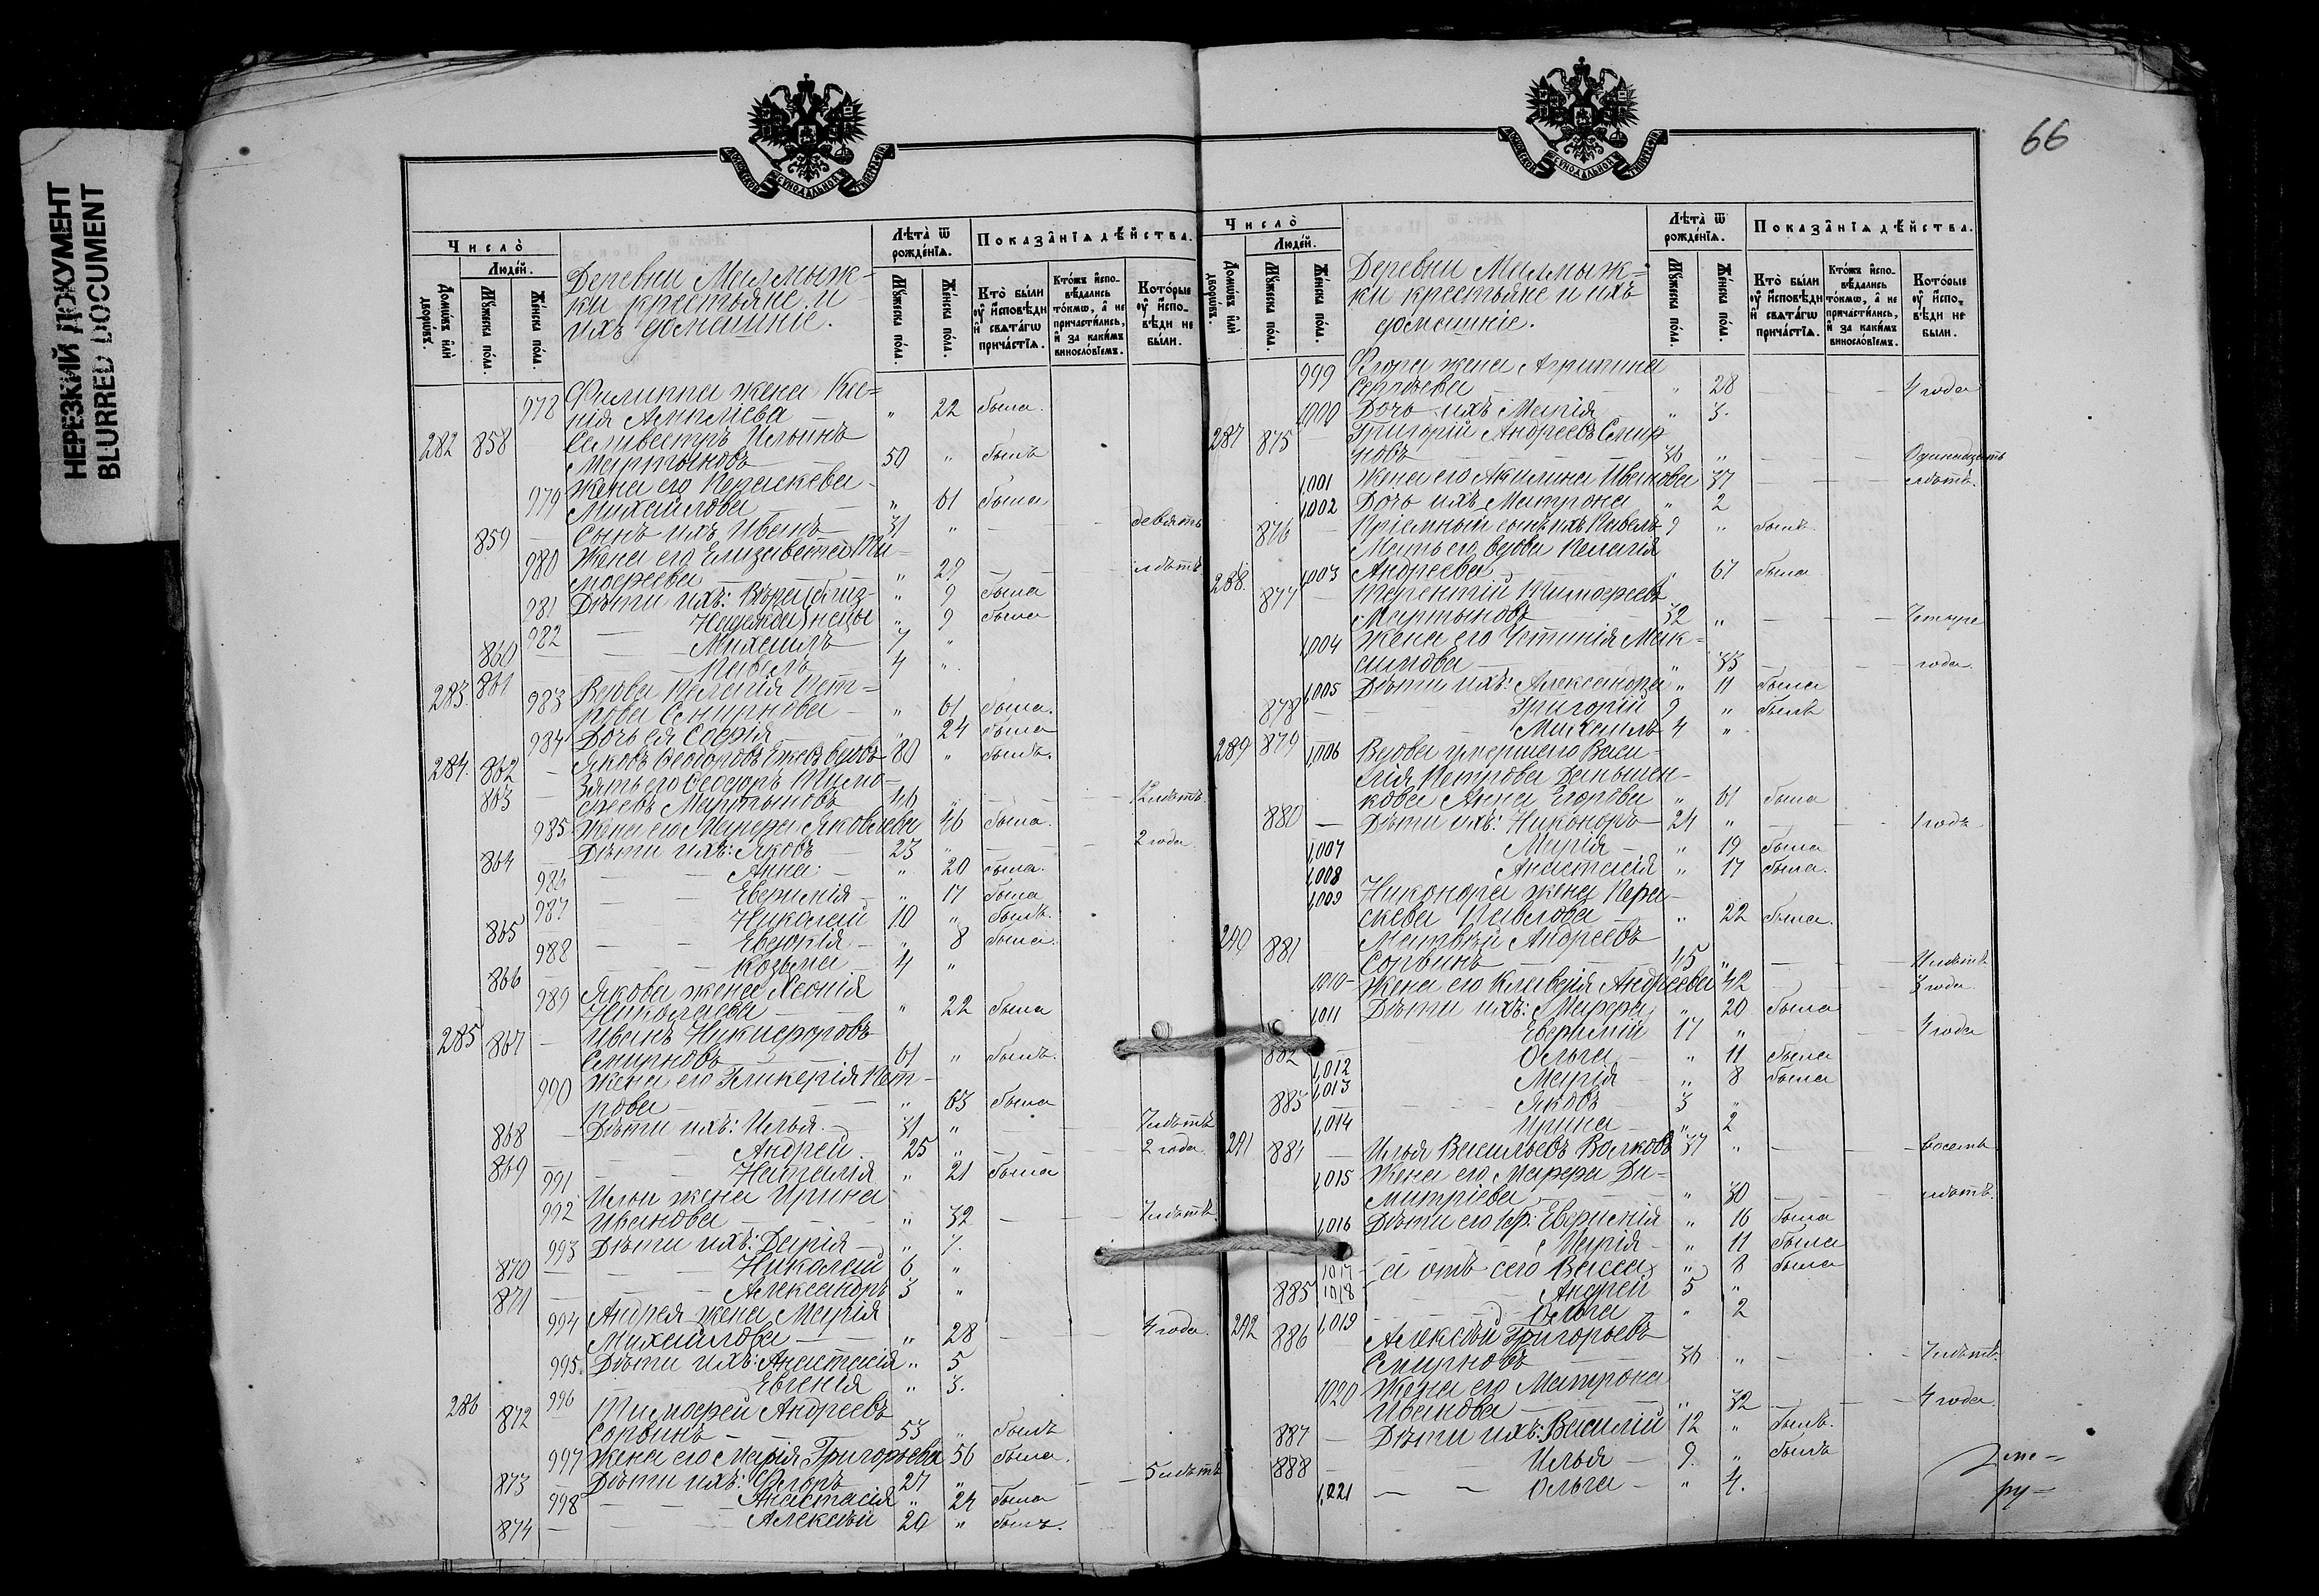 НЕРЕЗКИЙ ДОКУМЕНТ
BLURRED DOCUMENT
66
МОСКОВСКОЙ СѴНОДАЛЬНОЙ ТИПОГРАФІИ
Число̀
Людей.
Домѡвъ или дворѡвъ.
Мꙋжеска пола.
Женска пола.
Деревни Мелмыж-
ки крестьяне и
ихъ домашніе.
Лѣта ѿ рожденїѧ.
Мꙋжеска пола.
Женска пола.
Показанїѧ дѣйства.
Кто были ᲂу исповѣди и свѧтагѡ причастїѧ.
Ктожъ исповѣдались токмѡ, а не причастились, и за какимъ винословїемъ.
Которые ᲂу исповѣди не были.
978 Филиппа жена Ксе-
нія Амплієва " 22 была.
282 858 Селивестръ Ильинъ
Мартыновъ 50 " былъ
979 Жена его Параскева
Михайлова " 61 была
859 Сынъ ихъ Иванъ 31 " девять
980 Жена его Елизавета Ти-
мофеева " 29 лѣтъ
981 Дѣти ихъ: Вѣра (близ- " 9 была
982 Надежда) нецы " 9 была
860 Михаилъ 7 "
861 Павелъ 4 "
283. 983 Вдова Пелагія Пет-
рова Смирнова " 61 была.
984 Дочь ея Софія " 24 была
284. 862 Яковъ Ѳеодоровъ Ежевъ вдовъ 80 " былъ.
863 Зять его Ѳеодоръ Тимо-
феевъ Мартыновъ 46 " 12 лѣтъ.
985 Жена его Марѳа Яковлева 46 была.
864 Дѣти ихъ: Яковъ 23 " 2 года.
986 Анна " 20 была.
987 Евфимія " 17 была
865 Николай 10 " былъ.
988 Евдокія " 8 была.
866 Козьма 4 "
989 Якова жена Хеонія
Николаева " 22 была
285 867 Иванъ Никифоровъ
Смирновъ 61 " былъ.
990 Жена его Гликерія Пет-
рова " 63 была
868 Дѣти ихъ: Илья 31 " 7 лѣтъ
869 Андрей 25 " 2 года.
991 Наталія " 21 была
992 Ильи жена Ирина
Иванова " 32 7 лѣтъ.
993 Дѣти ихъ: Дарія " 7.
870 Николай 6 "
871 Александръ 3 "
994 Андрея жена Марія
Михайлова " 28 4 года.
995. Дѣти ихъ: Анастасія " 5
996 Евгенія " 3.
286 872 Тимофей Андреевъ
Сорвинъ 53 " былъ
997 Жена его Марія Григорьева 56 была.
873 Дѣти ихъ: Флоръ 27 " 5 лѣтъ
998 Анастасія " 24 была
874 Алексѣй 20 " былъ.
МОСКОВСКОЙ СѴНОДАЛЬНОЙ ТИПОГРАФІИ
Число̀
Людей.
Домѡвъ или дворѡвъ.
Мꙋжеска пола.
Женска пола.
Деревни Мелмыж-
ки крестьяне и ихъ
домашніе.
Лѣта ѿ рожденїѧ.
Мꙋжеска пола.
Женска пола.
Показанїѧ дѣйства.
Кто были ᲂу исповѣди и свѧтагѡ причастїѧ.
Ктожъ исповѣдались токмѡ, а не причастились, и за какимъ винословїемъ.
Которые ᲂу исповѣди не были.
999 Флора жена Агрипина
Сергѣева " 28 4 года
1000 Дочь ихъ Марія " 3.
287 875 Григорій Андреевъ Смир-
новъ 36 " Одинадцать
1,001 Жена его Акилина Иванова 37 лѣтъ.
1,002 Дочь ихъ Матрона " 2
876 Пріемный сынъ ихъ Павелъ 9 " былъ
Мать его вдова Пелагія
1,003 Андреева " 67 была
288. 877 Терентій Тимофеевъ
Мартыновъ 32 " Четыре
1,004 Жена его Устинія Мак-
симова " 33 года.
1,005 Дѣти ихъ: Александра " 11 была
878 Григорій 9 " былъ
879 Михаилъ 4 "
289 1,006 Вдова умершаго Васи-
лія Петрова Деньщен-
кова Анна Егорова " 61 была
880 Дѣти ихъ: Никоноръ 24 " 1 годъ.
1,007 Марія " 19 была
1,008 Анастасія " 17 была.
1,009 Никонора жена Пара-
скева Павлова " 22 была.
290 881 Матвѣй Андреевъ
Сорвинъ 45 " 11 лѣтъ
1010 Жена его Клавдія Андреева 42 3 года.
1,011 Дѣти ихъ: Марѳа " 20 была
882 Евфимій 17 " 4 года
1,012 Ольга " 11 была
1,013 Марія " 8 была
883 Яковъ 3 "
1,014 Ирина " 2
291 884 Илья Васильевъ Волковъ 37 " восемь
1,015 Жена его Марѳа Ди-
митріева " 30 лѣтъ.
1,016 Дѣти его 1 бр: Евфимія " 16 была
Марія " 11 была
1017 а отъ сего Васса " 8 была
885 1018 Андрей 5 "
1,019 Ольга " 2
292 886 Алексѣй Григорьевъ
Смирновъ 36 " 7 лѣтъ.
1020 Жена его Матрона
Иванова " 32 4 года.
887 Дѣти ихъ: Василій 12 " былъ.
888 Илья 9. " былъ
1,021 Ольга " 4.